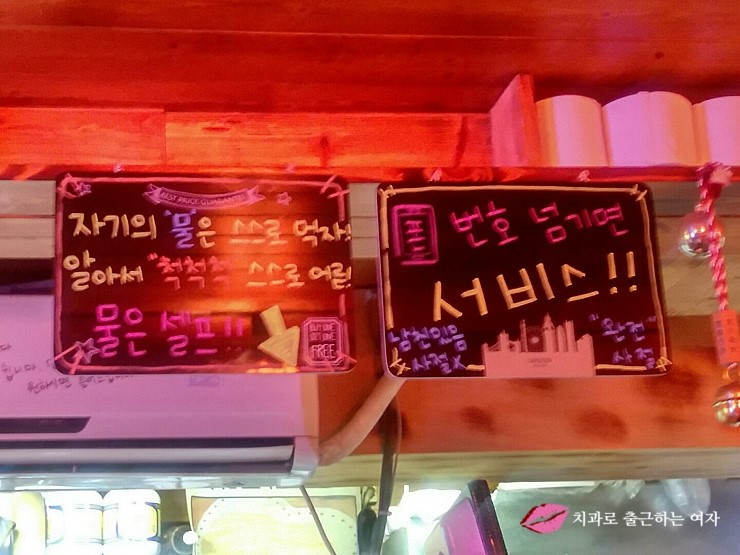 BEST PRICE GUARANTEE
자기의 "물"은 스스로 먹자!
알아서 "척척척" 스스로 어린!
물은 셀프!!
BUY ONE
GET ONE
FREE
번호 넘기면
서비스!!
남친있음
사절X
"완전"
사절
치과로 출근하는 여자